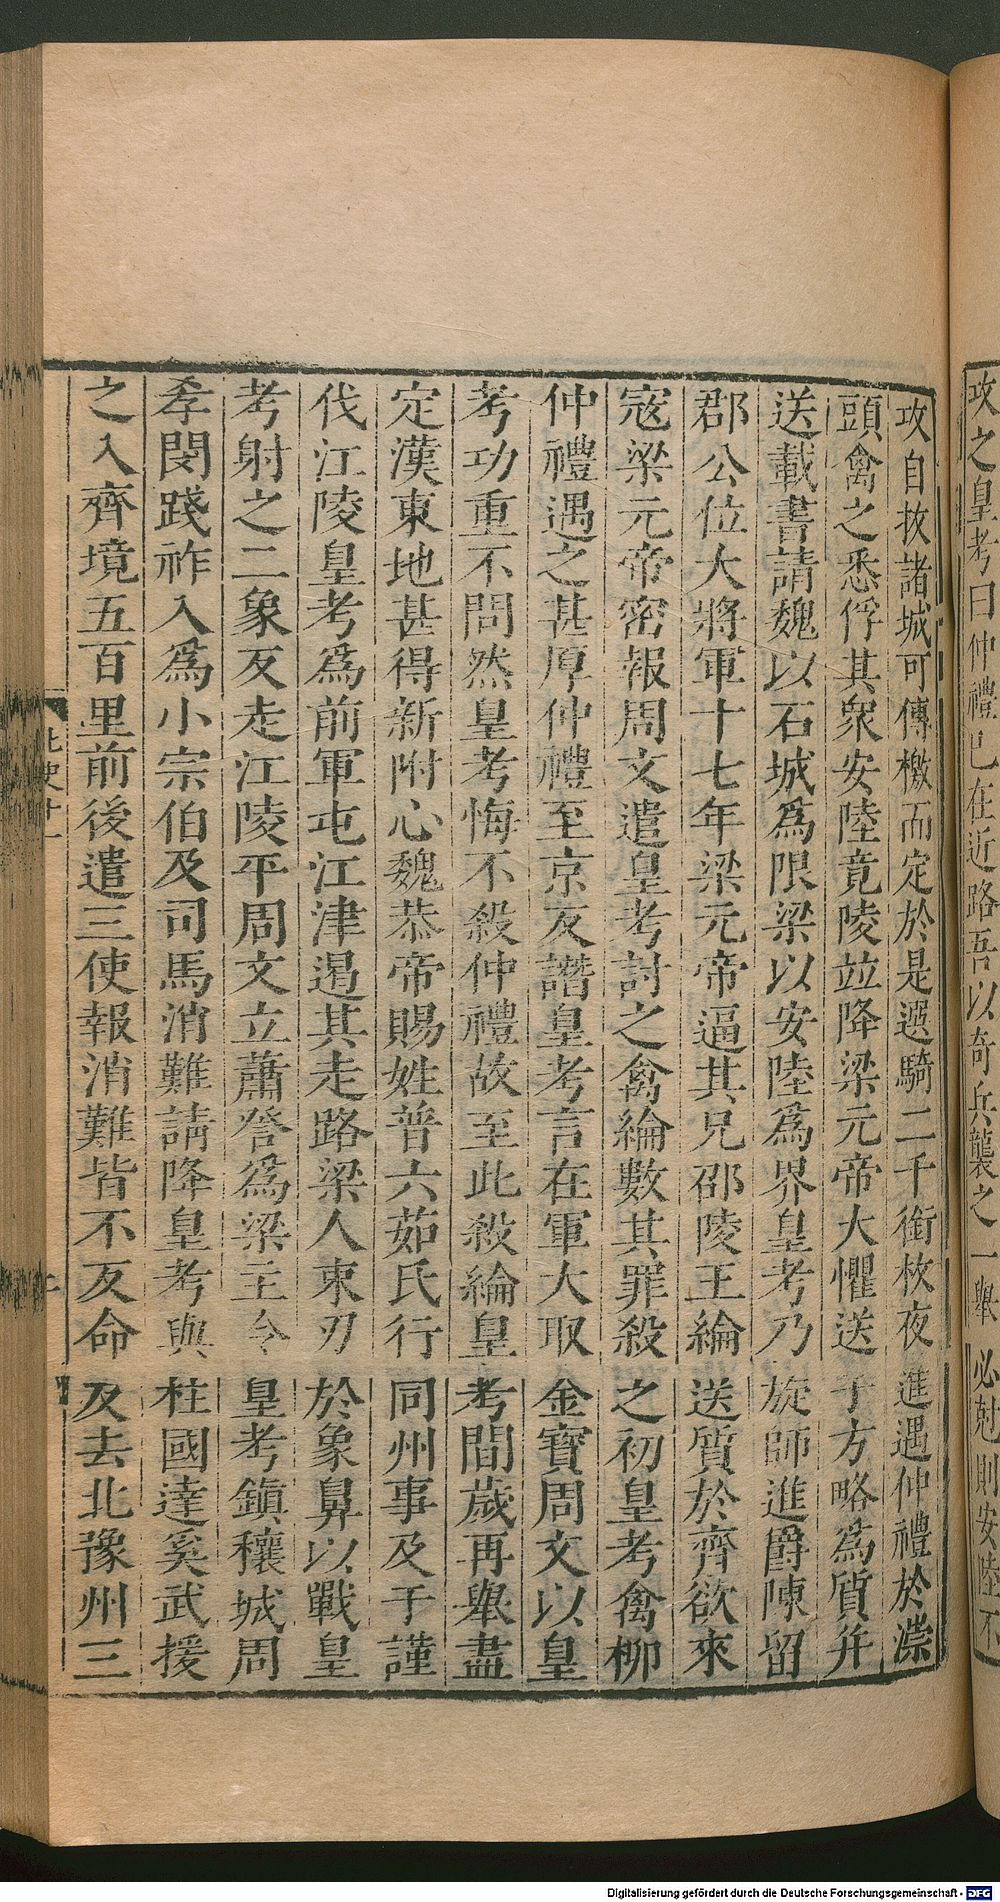 攻之皇考曰仲禮已在近路吾以奇兵襲之一舉必尅則安陸不
攻自拔諸城可傳檄而定於是選騎二千銜枚夜進遇仲禮於漴
頭禽之悉俘其衆安陸竟陵竝降梁元帝大懼送子方略爲質并
送載書請魏以石城爲限梁以安陸爲界皇考乃旋師進爵陳留
郡公位大將軍十七年梁元帝逼其兄邵陵王綸送質於齊欲來
寇梁元帝密報周文遣皇考討之禽綸數其罪殺之初皇考禽柳
仲禮遇之甚厚仲禮至京反譖皇考言在軍大取金寶周文以皇
考功重不問然皇考悔不殺仲禮故至此殺綸皇考間歲再舉盡
定漢東地甚得新附心魏恭帝賜姓普六茹氏行同州事及于謹
伐江陵皇考爲前軍屯江津遏其走路梁人束刃於象鼻以戰皇
考射之二象反走江陵平周文立蕭詧爲梁主令皇考鎮穰城周
孝閔踐祚入爲小宗伯及司馬消難請降皇考與柱國達奚武援
之入齊境五百里前後遣三使報消難皆不反命及去北豫州三
北史十一